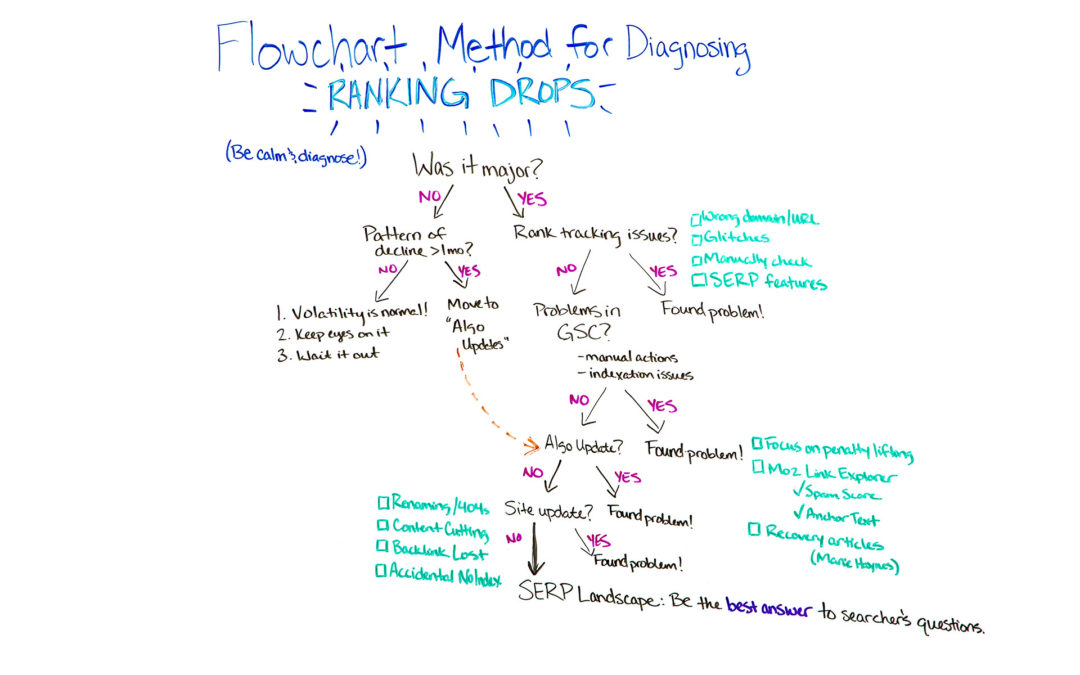 Flowchart Method for Diagnosing
RANKING DROPS
(Be calm & diagnose!)
Was it major?
NO
YES
Pattern of
decline >1mo?
Rank tracking issues?
☐ Wrong domain/URL
☐ Glitches
☐ Manually check
☐ SERP features
NO
YES
NO
YES
1. Volatility is normal!
2. Keep eyes on it
3. Wait it out
Move to
"Algo
Updates"
Problems in
GSC?
- manual actions
- indexation issues
Found problem!
NO
YES
Algo Update?
Found problem!
☐ Focus on penalty lifting
☐ Moz Link Explorer
✓ Spam Score
✓ Anchor Text
☐ Recovery articles
(Marie Haynes)
NO
YES
☐ Renaming/404s
☐ Content Cutting
☐ Backlink Lost
☐ Accidental No Index
Site update?
Found problem!
NO
YES
Found problem!
SERP Landscape: Be the best answer to searcher's questions.